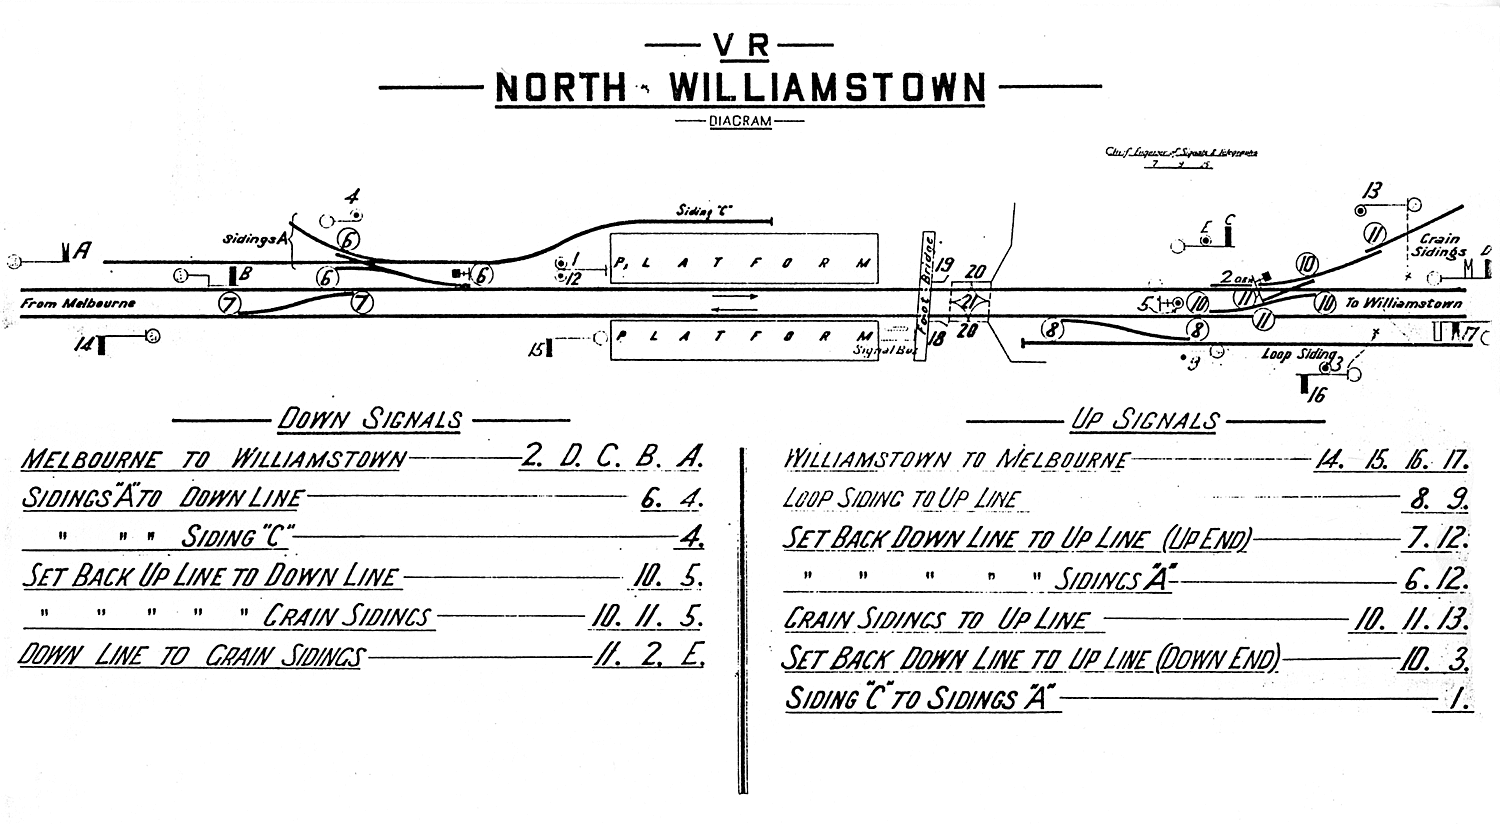 V R
NORTH WILLIAMSTOWN
DIAGRAM
Chief Engineer of Signals & Telegraphs
4
13
Siding "C"
Sidings A
6
A
E
C
11
Grain
Sidings
D
M
6
6
B
1
12
PLATFORM
Foot Bridge
19
20
2 OR
11
10
From Melbourne
7
7
21
5
10
10
To Williamstown
14
15
PLATFORM
Signal Box
18
20
8
8
11
17
9
Loop Siding
3
16
DOWN SIGNALS
MELBOURNE TO WILLIAMSTOWN 2. D. C. B. A.
SIDINGS "A" TO DOWN LINE 6. 4.
" " " SIDING "C" 4.
SET BACK UP LINE TO DOWN LINE 10. 5.
" " " " " GRAIN SIDINGS 10. 11. 5.
DOWN LINE TO GRAIN SIDINGS 11. 2. E.
UP SIGNALS
WILLIAMSTOWN TO MELBOURNE 14. 15. 16. 17.
LOOP SIDING TO UP LINE 8. 9.
SET BACK DOWN LINE TO UP LINE (UP END) 7. 12.
" " " " " SIDINGS "A" 6. 12.
GRAIN SIDINGS TO UP LINE 10. 11. 13.
SET BACK DOWN LINE TO UP LINE (DOWN END) 10. 3.
SIDING "C" TO SIDINGS "A" 1.